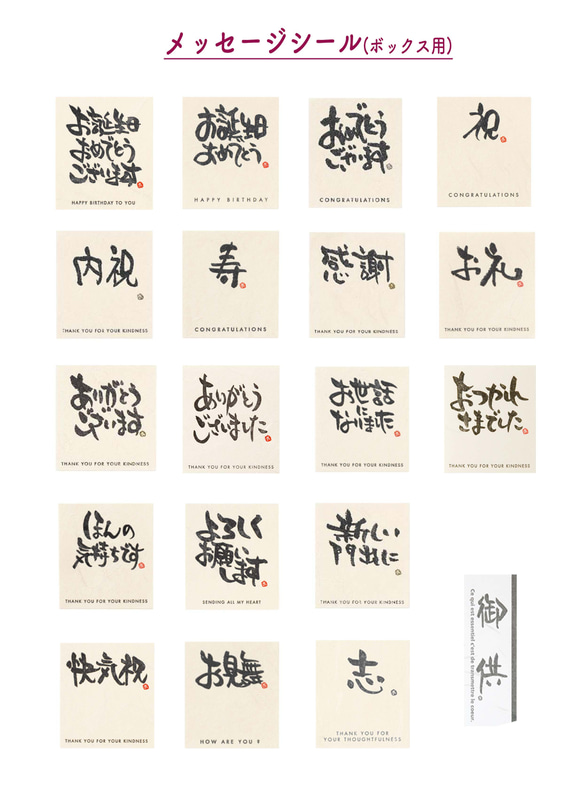 メッセージシール(ボックス用)
お誕生日
おめでとう
ございます
HAPPY BIRTHDAY TO YOU
お誕生日
おめでとう
HAPPY BIRTHDAY
おめでとう
ございます
CONGRATULATIONS
祝
CONGRATULATIONS
内祝
THANK YOU FOR YOUR KINDNESS
寿
CONGRATULATIONS
感謝
THANK YOU FOR YOUR KINDNESS
お礼
THANK YOU FOR YOUR KINDNESS
ありがとう
ございます
THANK YOU FOR YOUR KINDNESS
ありがとう
ございました
THANK YOU FOR YOUR KINDNESS
お世話
に
なりました
THANK YOU FOR YOUR KINDNESS
おつかれ
さまでした
THANK YOU FOR YOUR KINDNESS
ほんの
気持ちです
THANK YOU FOR YOUR KINDNESS
よろしく
お願い
します
SENDING ALL MY HEART
新しい
門出に
THANK YOU FOR YOUR KINDNESS
御供
Ce qui est essentiel c'est de transmettre le coeur.
快気祝
THANK YOU FOR YOUR KINDNESS
お見舞
HOW ARE YOU ?
志
THANK YOU FOR
YOUR THOUGHTFULNESS